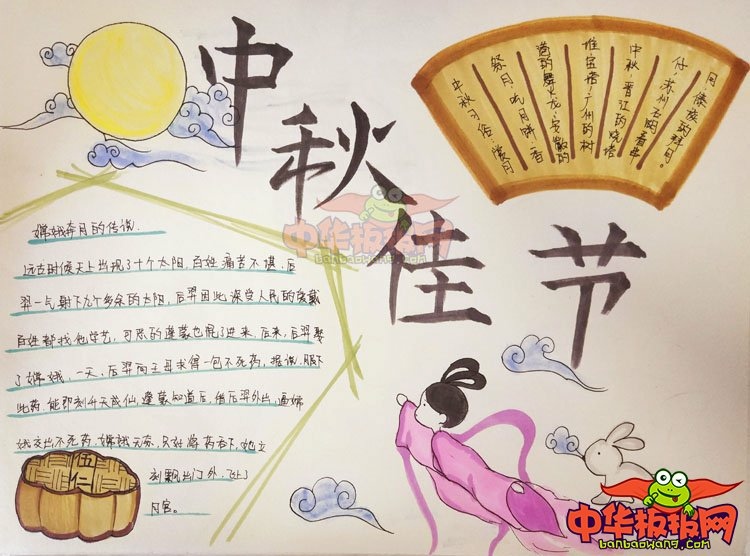 中秋佳节
中秋习俗：赏月
祭月，吃月饼，香
港的舞火龙，安徽的
堆宝塔，广州的树
中秋，晋江的烧塔
仔，苏州石湖看串
月，傣族的拜月。
嫦娥奔月的传说.
远古时候天上出现了十个太阳，百姓痛苦不堪，后
羿一气射下九个多余的太阳，后羿因此深受人民的爱戴
百姓都找他学艺，可恶的逢蒙也混了进来，后来，后羿娶
了嫦娥，一天，后羿向王母求得一包不死药，据说，服下
此药，能即刻升天成仙，逢蒙知道后，借后羿外出，逼嫦
娥交出不死药，嫦娥无奈，只好将药吞下，她立
刻飘出门外，飞上了
月宫。
伍
仁
中华板报网
banbaowang.com
中华板报网
banbaowang.com